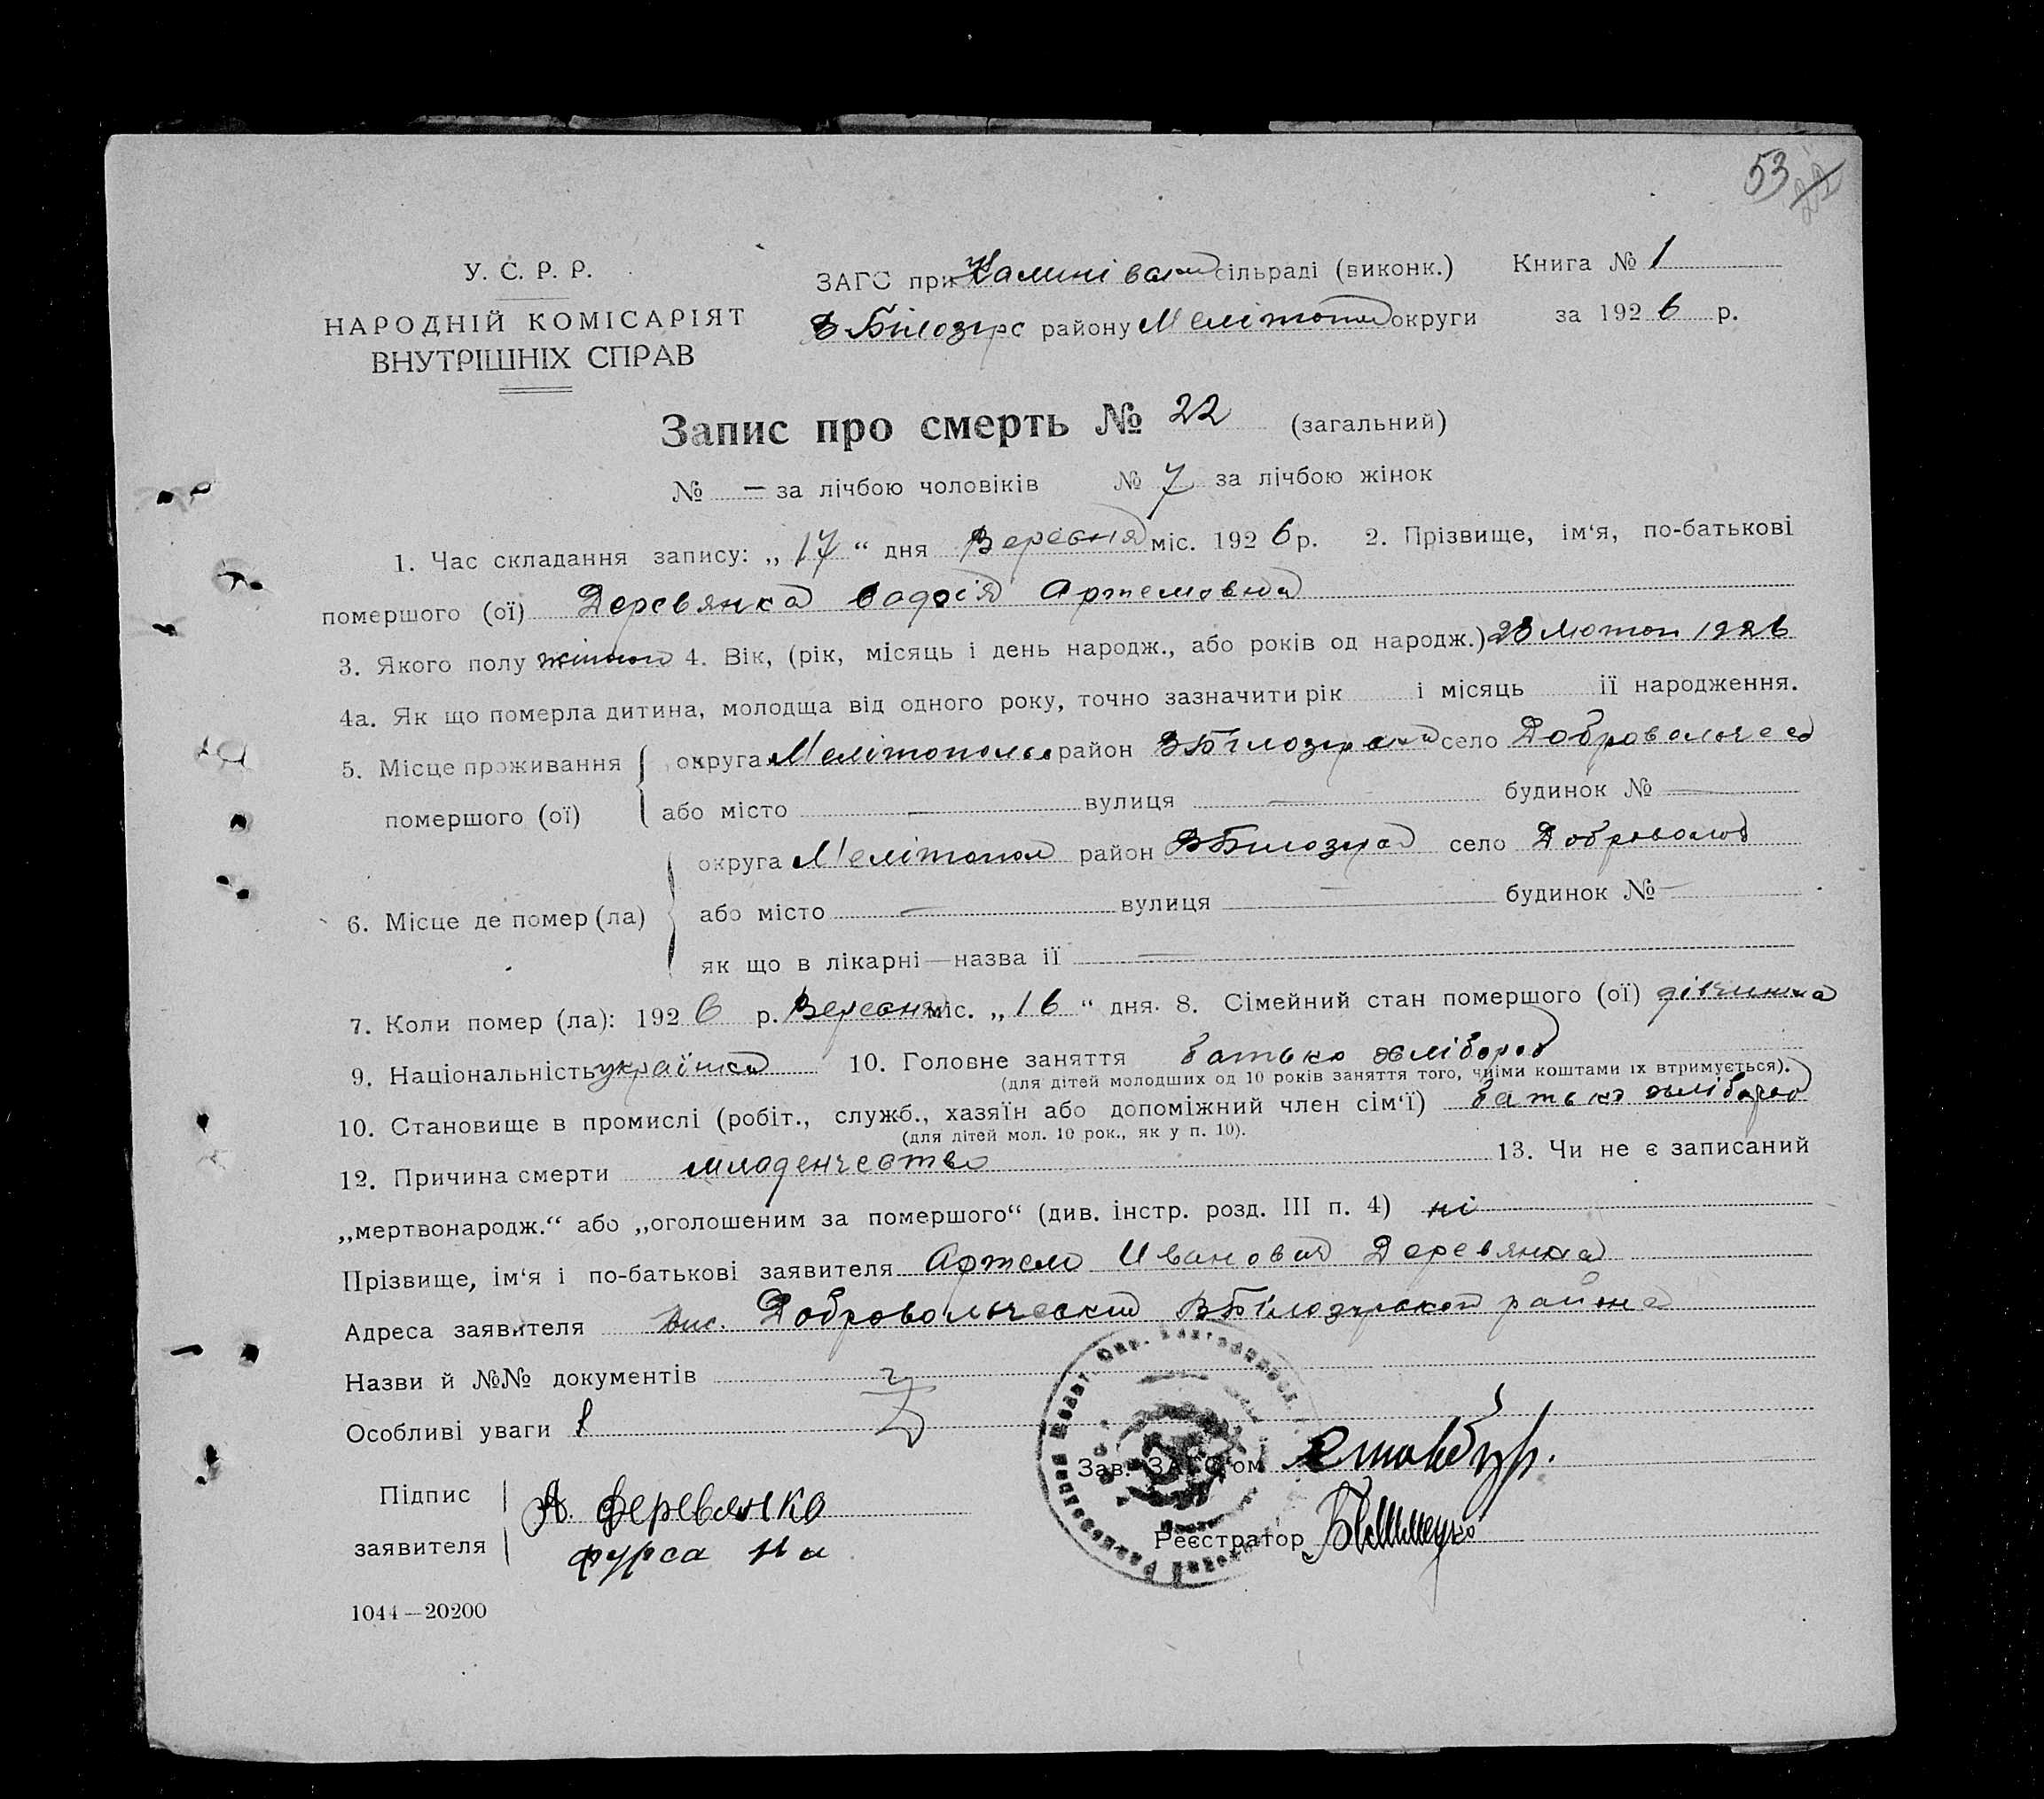 53 22
У. С. Р. Р.
НАРОДНІЙ КОМІСАРІЯТ
ВНУТРІШНІХ СПРАВ
ЗАГС при сільраді (виконк.) Книга № 1
В Білозірс району Мелітопол округи за 1926 р.
Запис про смерть № 22 (загальний)
№ — за лічбою чоловіків № 7 за лічбою жінок
1. Час складання запису: „17“ дня Вересня міс. 1926 р. 2. Прізвище, ім‘я, по-батькові
помершого (ої) Деревянка Артемовна
3. Якого полу 4. Вік, (рік, місяць і день народж., або років од народж.) 28 Лютого 1926
4а. Як що померла дитина, молодща від одного року, точно зазначити рік і місяць її народження.
5. Місце проживання округа Мелітополь район ВБілозірский село
помершого (ої) або місто — вулиця — будинок № —
округа Мелітопол район ВБілозирс село
6. Місце де помер (ла) або місто — вулиця — будинок № —
як що в лікарні—назва її —
7. Коли помер (ла): 1926 р. Вересня міс. „16“ дня. 8. Сімейний стан помершого (ої) дівчинка
9. Національність українка 10. Головне заняття батько хлібороб
(для дітей молодших од 10 років заняття того, чиїми коштами їх втримується).
10. Становище в промислі (робіт., служб., хазяїн або допоміжний член сім‘ї) батько хлібороб
(для дітей мол. 10 рок., як у п. 10).
12. Причина смерти младенчество 13. Чи не є записаний
„мертвонародж.“ або „оголошеним за помершого“ (див. інстр. розд. III п. 4) ні
Прізвище, ім‘я і по-батькові заявителя Артем Иванович Деревянка
Адреса заявителя вис. ВБілозирского района
Назви й №№ документів
Особливі уваги
Зав. ЗАГС‘ом
Підпис А. Деревянко
заявителя фурса
Реєстратор
1044—20200